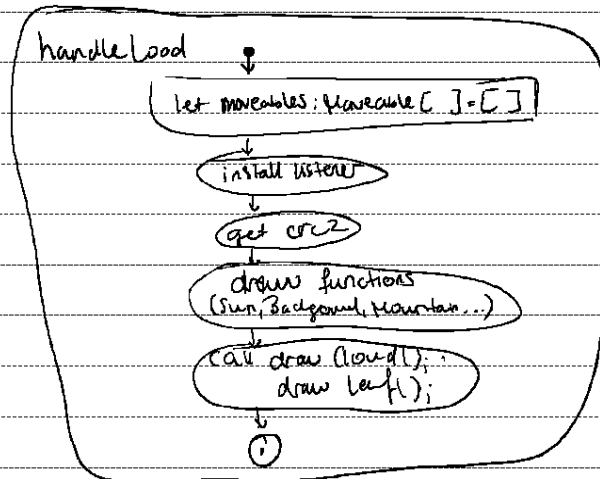 handleLoad
let moveables: Moveable[ ] = [ ]
install listener
get crc2
draw functions
(Sun, Background, Mountain...)
call draw Cloud();
draw Leaf();